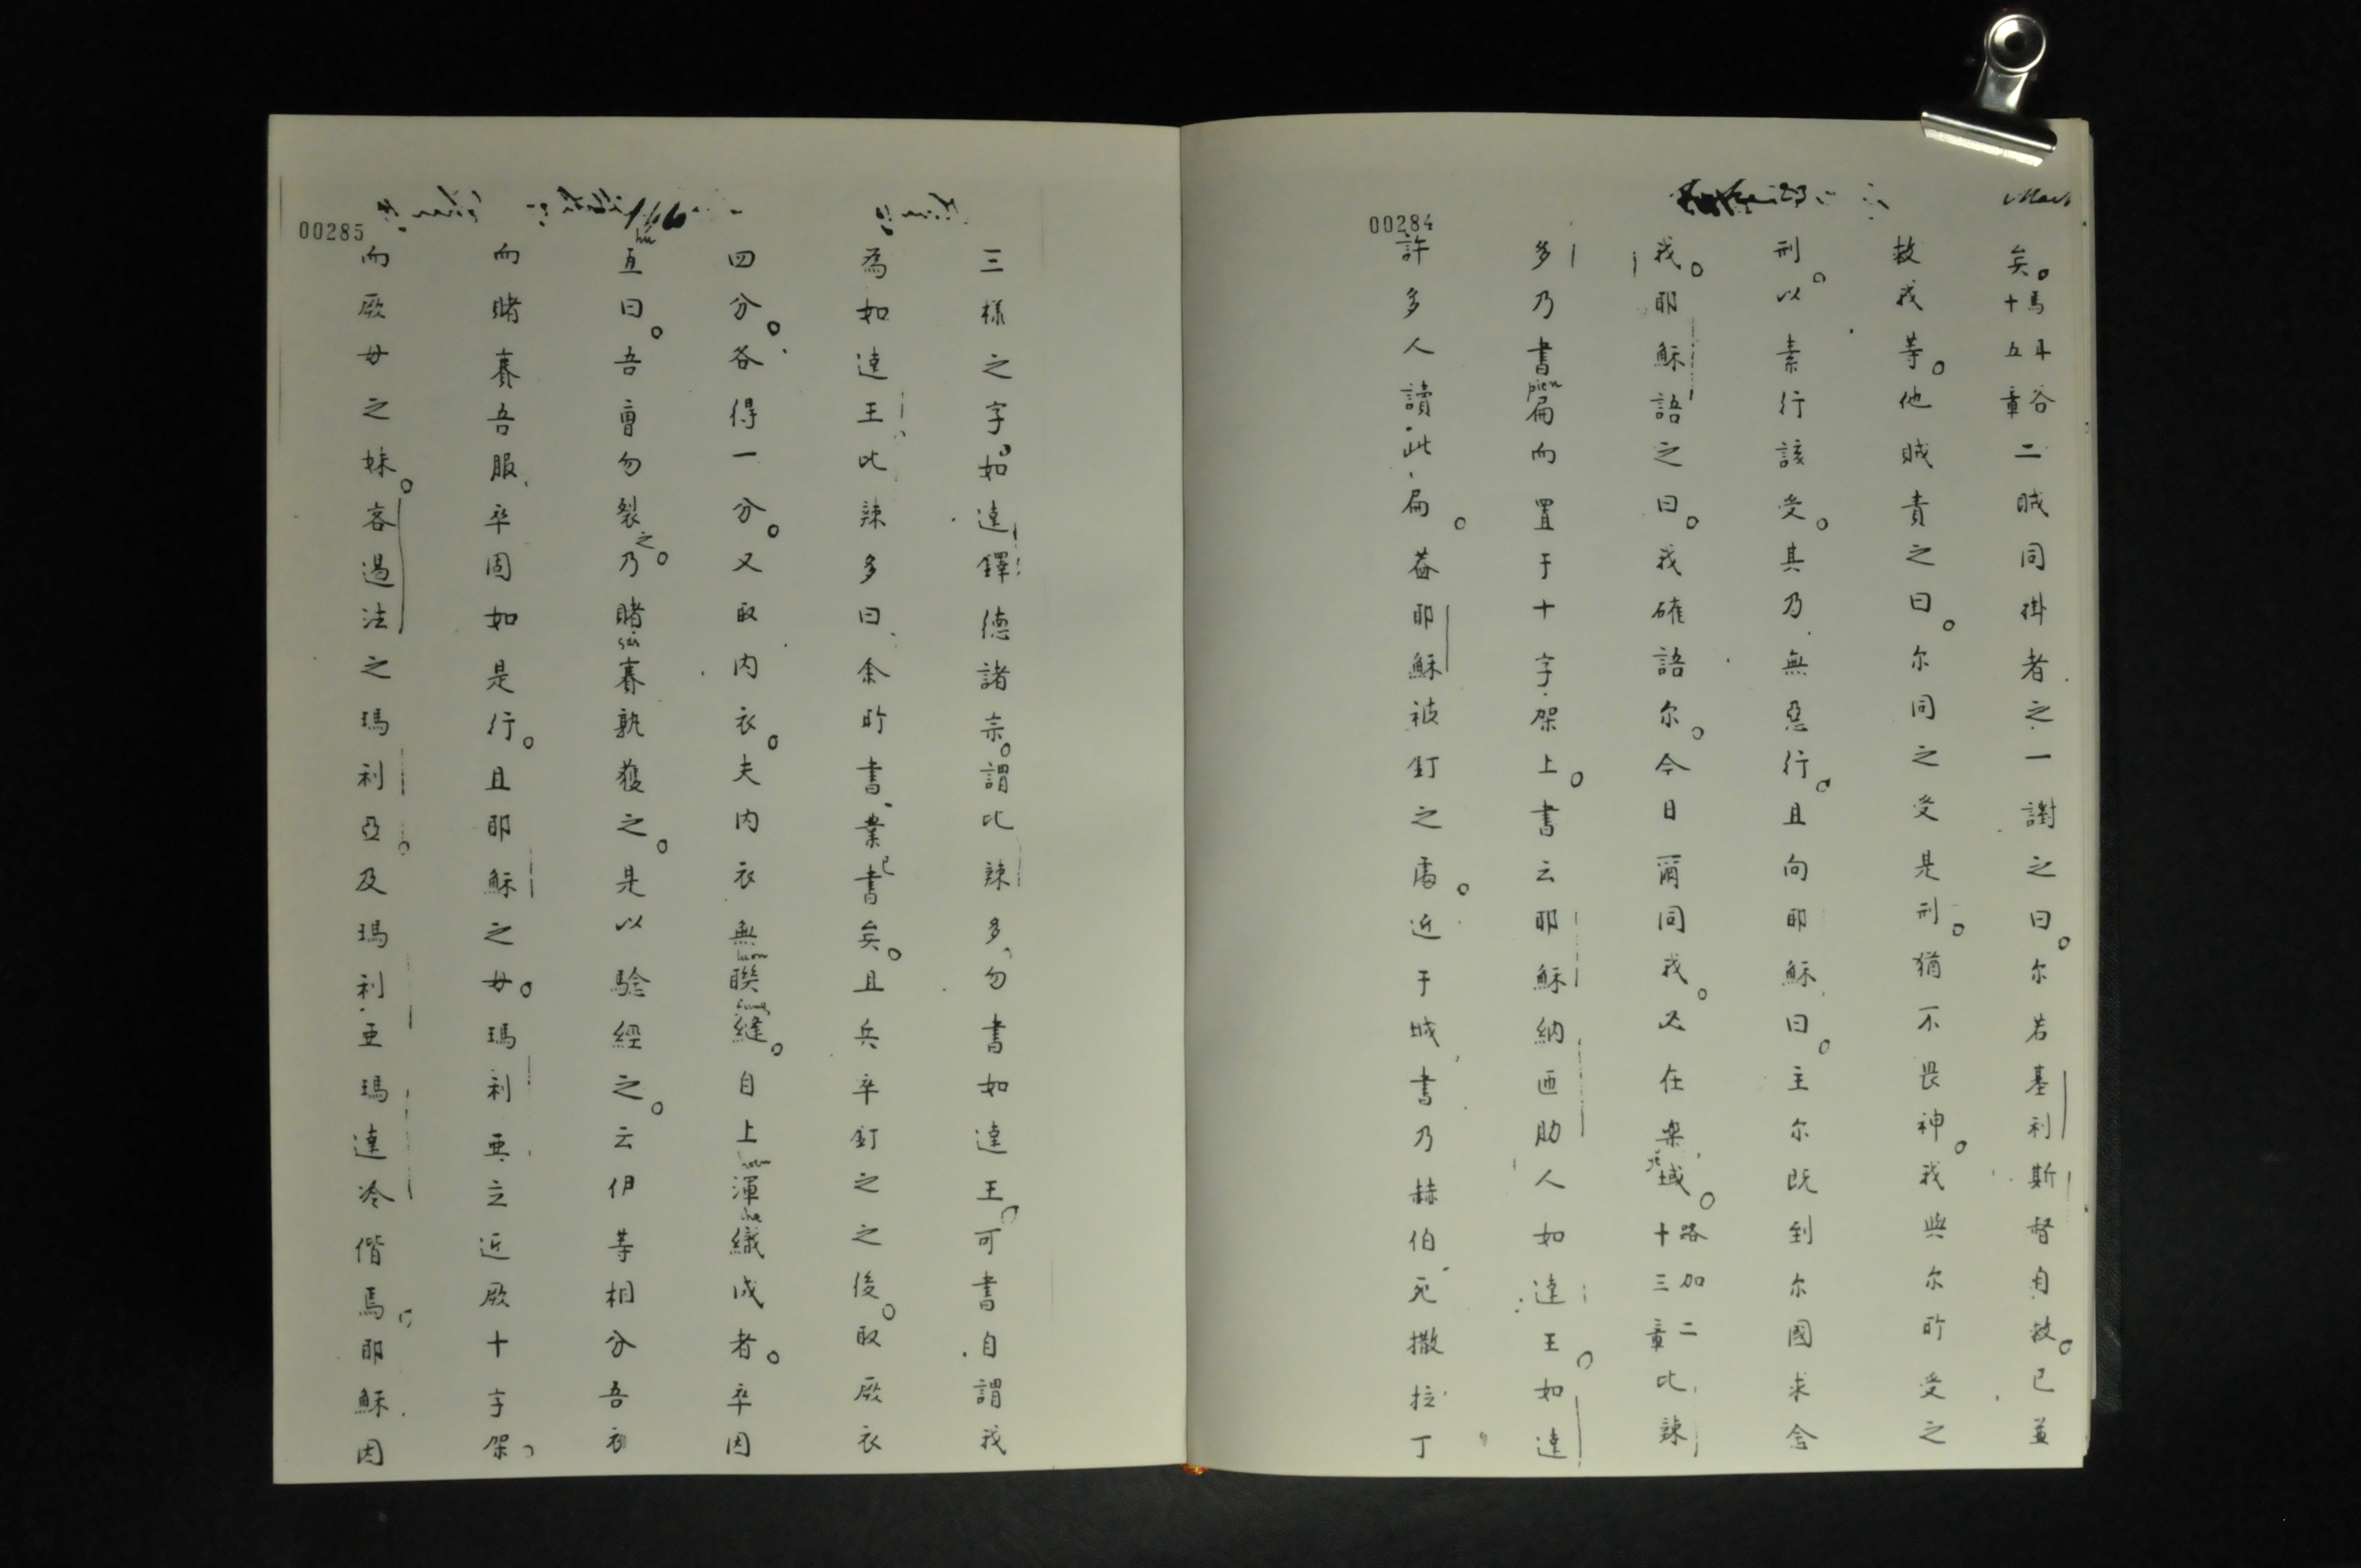 00284
矣。馬耳谷十五章二賊同掛者之一謝之曰。尔若基利斯督自救。已並
救我等。他賊責之曰。尔同之受是刑。猶不畏神。我與尔所受之
刑。以素行該受。其乃無惡行。且向耶穌曰。主尔既到尔國求念
我。耶穌語之曰。我確語尔。今日爾同我。必在樂域。路加二十三章比辣
多乃書扁而置于十字架上。書云耶穌納匝肋人如達王。如達
許多人讀此扁。蓋耶穌被釘之處。近于城書乃赫伯。厄撒拉丁
00285
三樣之字。如達鐸德諸宗。謂比辣多、勿書如達王。可書自謂我
為如達王比辣多曰余所書業已書矣。且兵卒釘之之後。取厥衣
四分。各得一分。又取內衣。夫內衣無聯縫。自上渾織成者。卒因
互曰。吾曹勿裂之。乃賭賽孰獲之。是以驗經之。云伊等相分吾衣
而賭賽吾服、卒固如是行。且耶穌之母。瑪利亞立近厥十字架。
而厥母之妹。客過法之瑪利亞。及瑪利亞瑪達冷偕焉。耶穌因